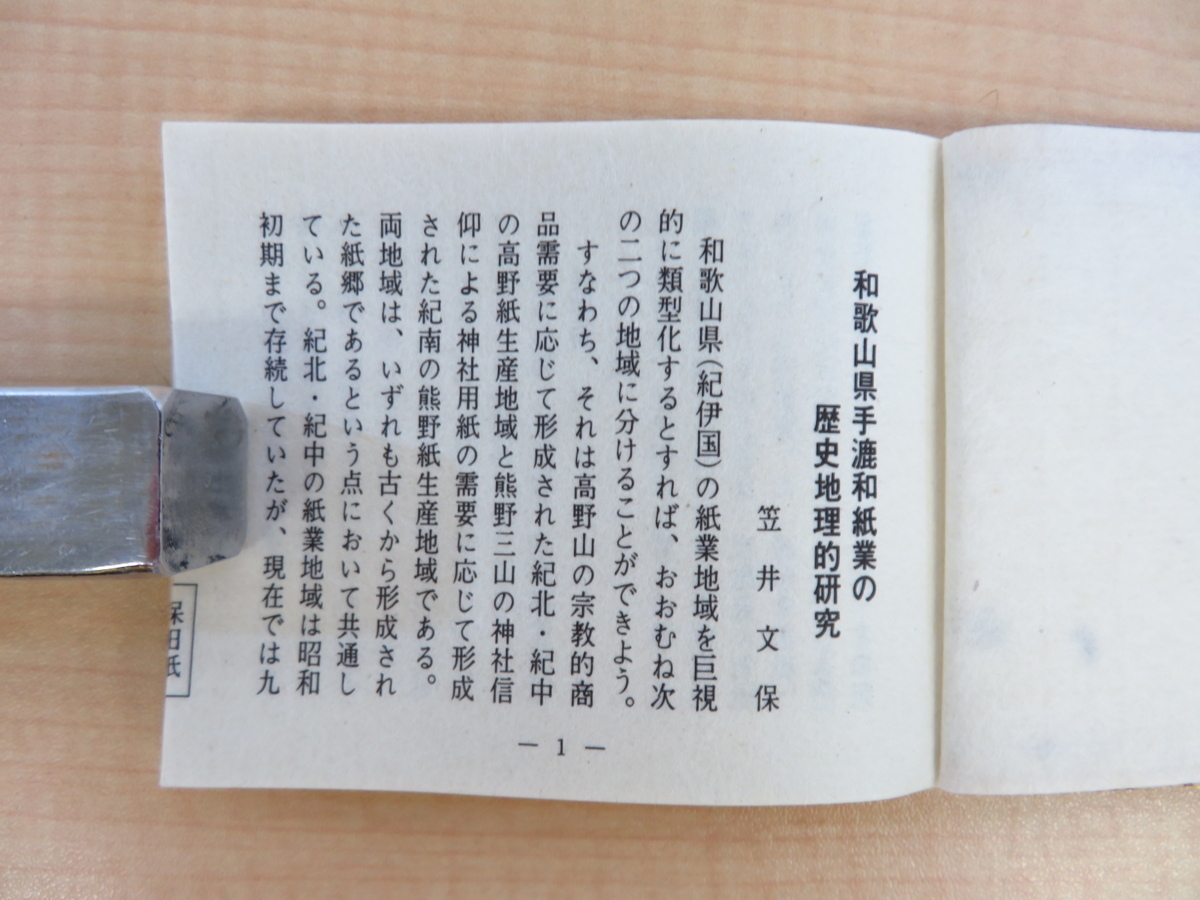 和歌山県手漉和紙業の
歴史地理的研究
笠井文保
和歌山県(紀伊国)の紙業地域を巨視
的に類型化するとすれば、おおむね次
の二つの地域に分けることができよう。
すなわち、それは高野山の宗教的商
品需要に応じて形成された紀北・紀中
の高野紙生産地域と熊野三山の神社信
仰による神社用紙の需要に応じて形成
された紀南の熊野紙生産地域である。
両地域は、いずれも古くから形成され
た紙郷であるという点において共通し
ている。紀北・紀中の紙業地域は昭和
初期まで存続していたが、現在では九
保田紙
— 1 —